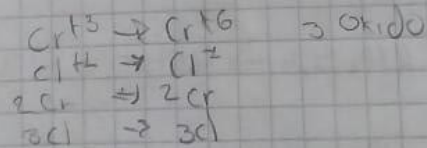 Cr+3 → Cr+6 ⊃ Okido
Cl+1 → Cl-
2Cr → 2Cr
3Cl → 3Cl